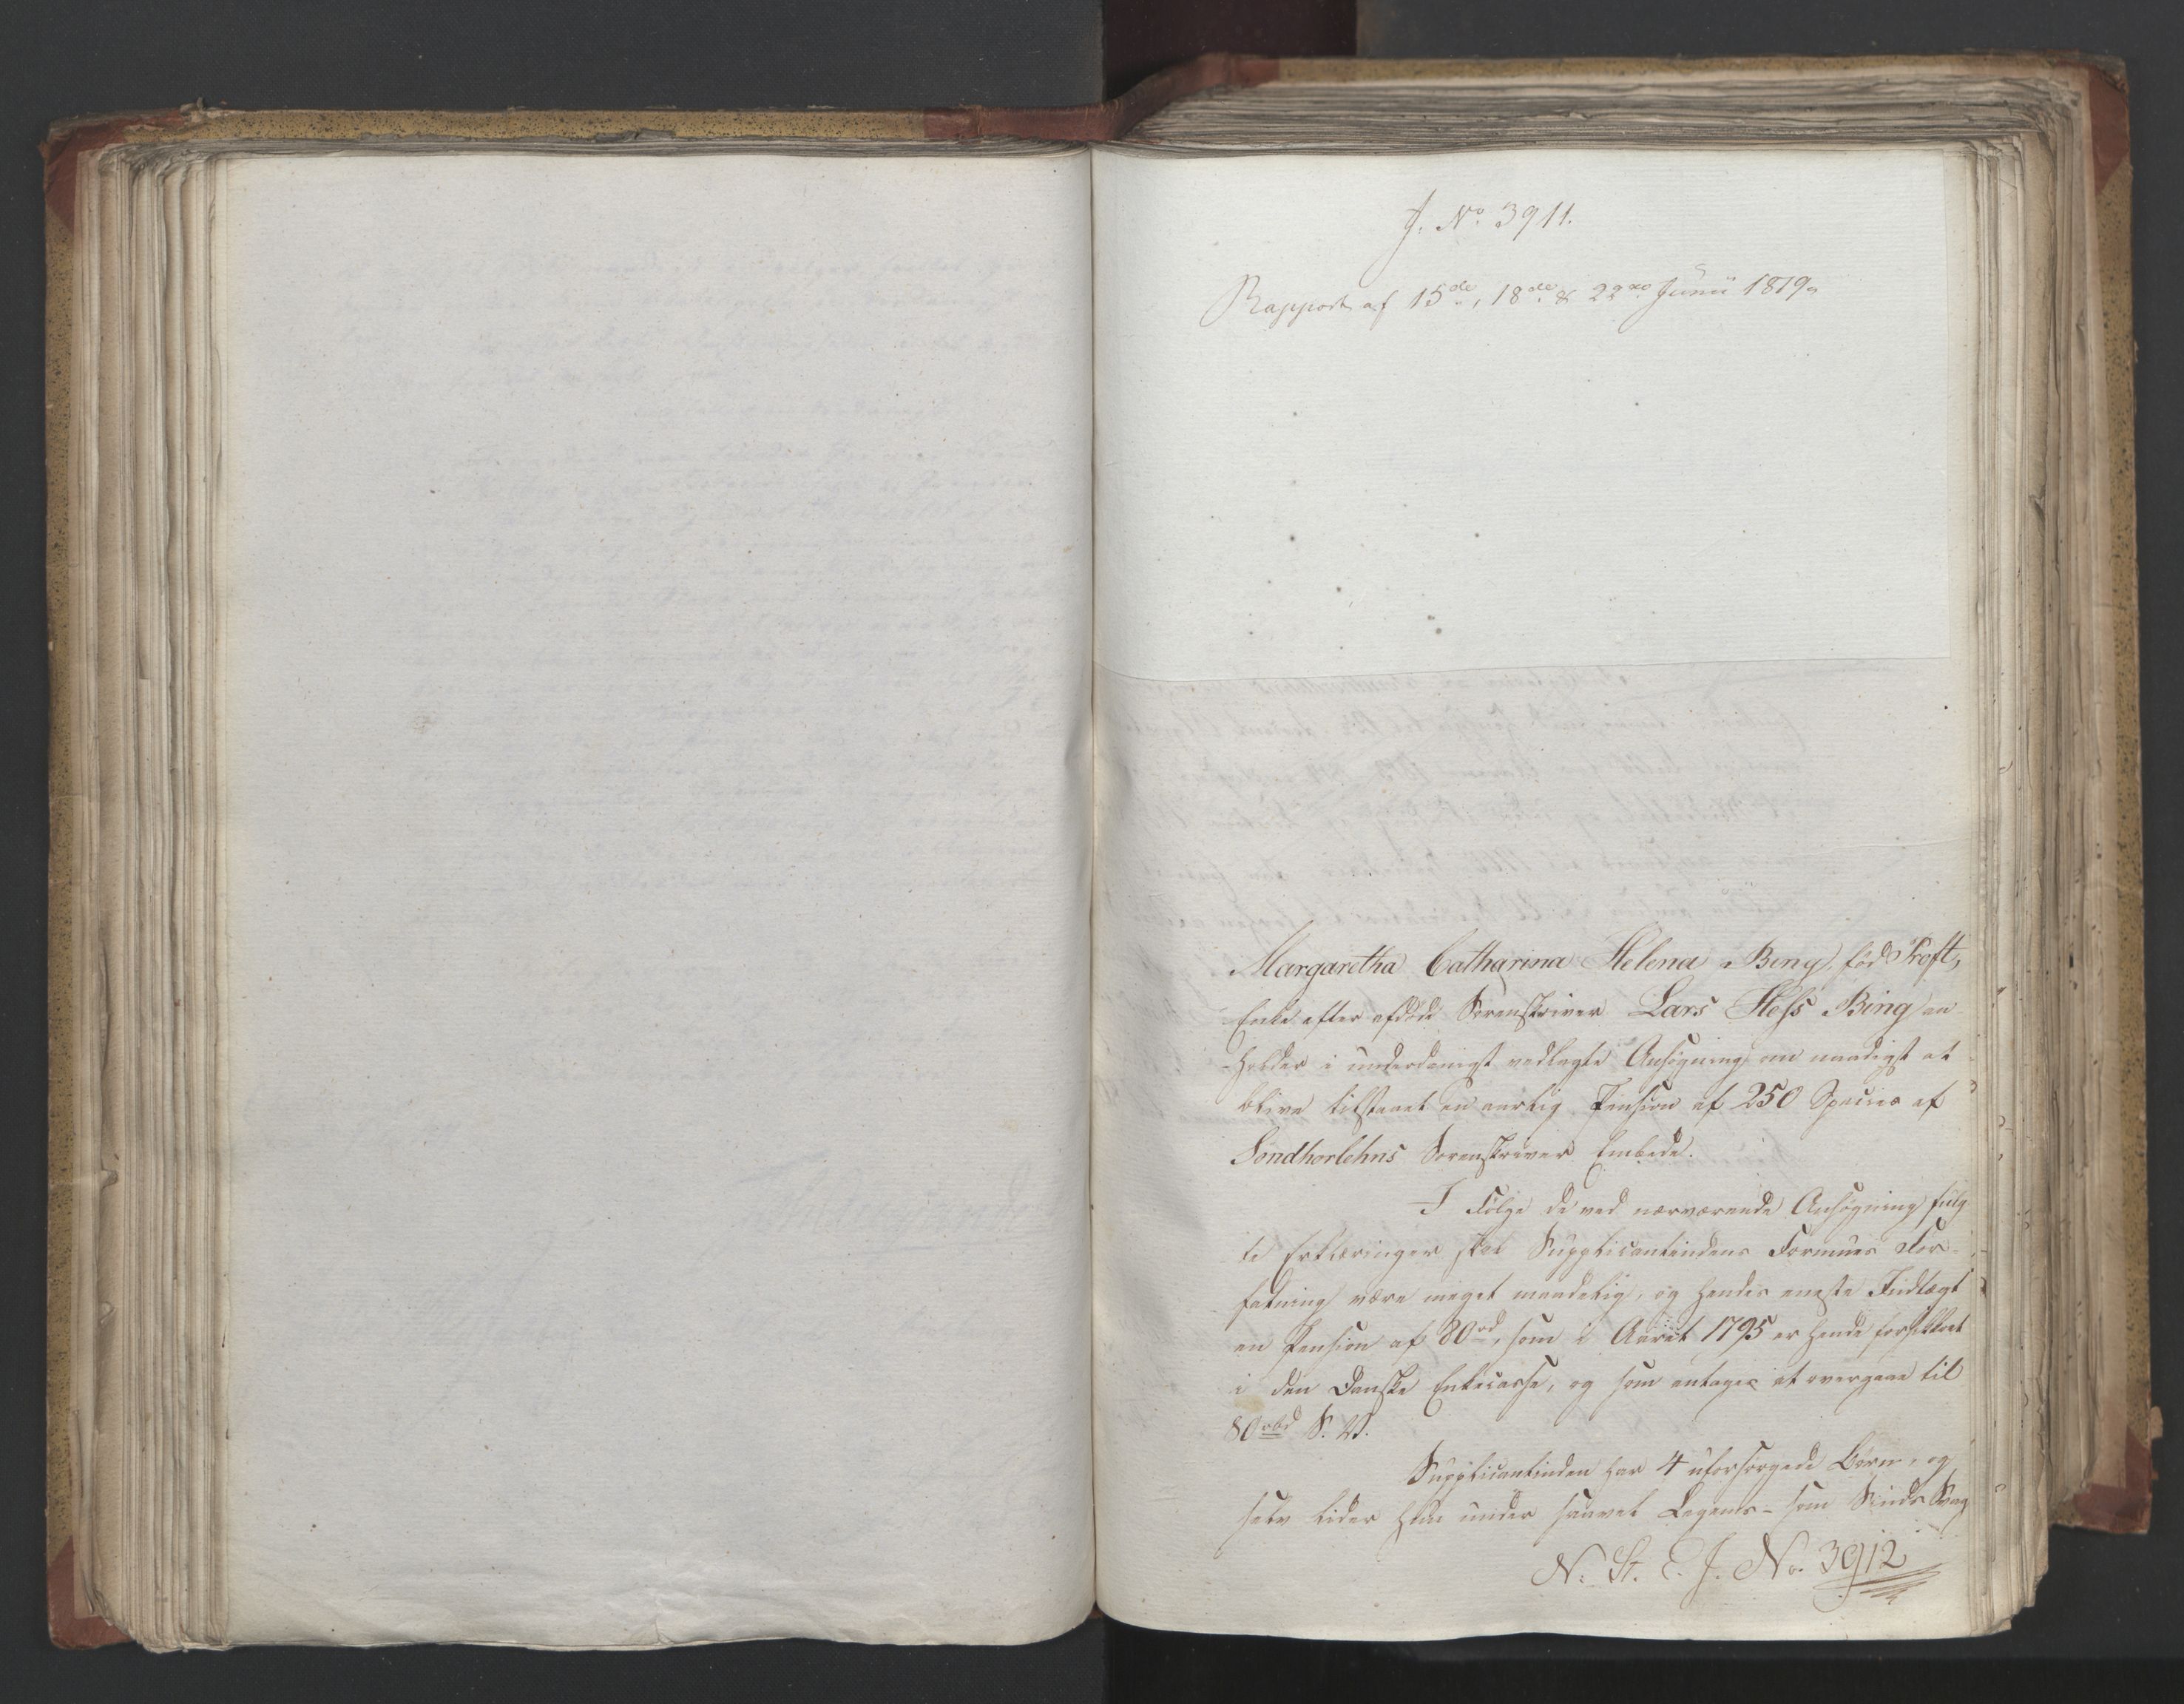 J. No 3911.
Rapport af 15de, 18de & 22de Junii 1819.
Margaretha Catharina Helena Bing, född Troft,
Enke efter afdöde Sorenskriver Lars Hess Bing an-
holder i underdanigst vedlagte Ansögning om naadigst at
blive tilstaaet en aarlig Pension af 250 Species af
Söndhorlehns Sorenskriver Embede.
I Fölge de ved nærværende Ansögning fulg-
te Erklæringer skal Supplicantindens Formues For-
fatning være meget maadelig, og hendes eneste Indtægt
en Pension af 80rd, som i Aaret 1795 er hende forsikkret
i den Danske Enkecasse, og som antages at overgaae til
80rbd S. V.
Supplicantinden har 4 uforsörgede Börn, og
selv lider hun under saavel Legems- som Sinds Svag
N. St. E. J. No. 3912